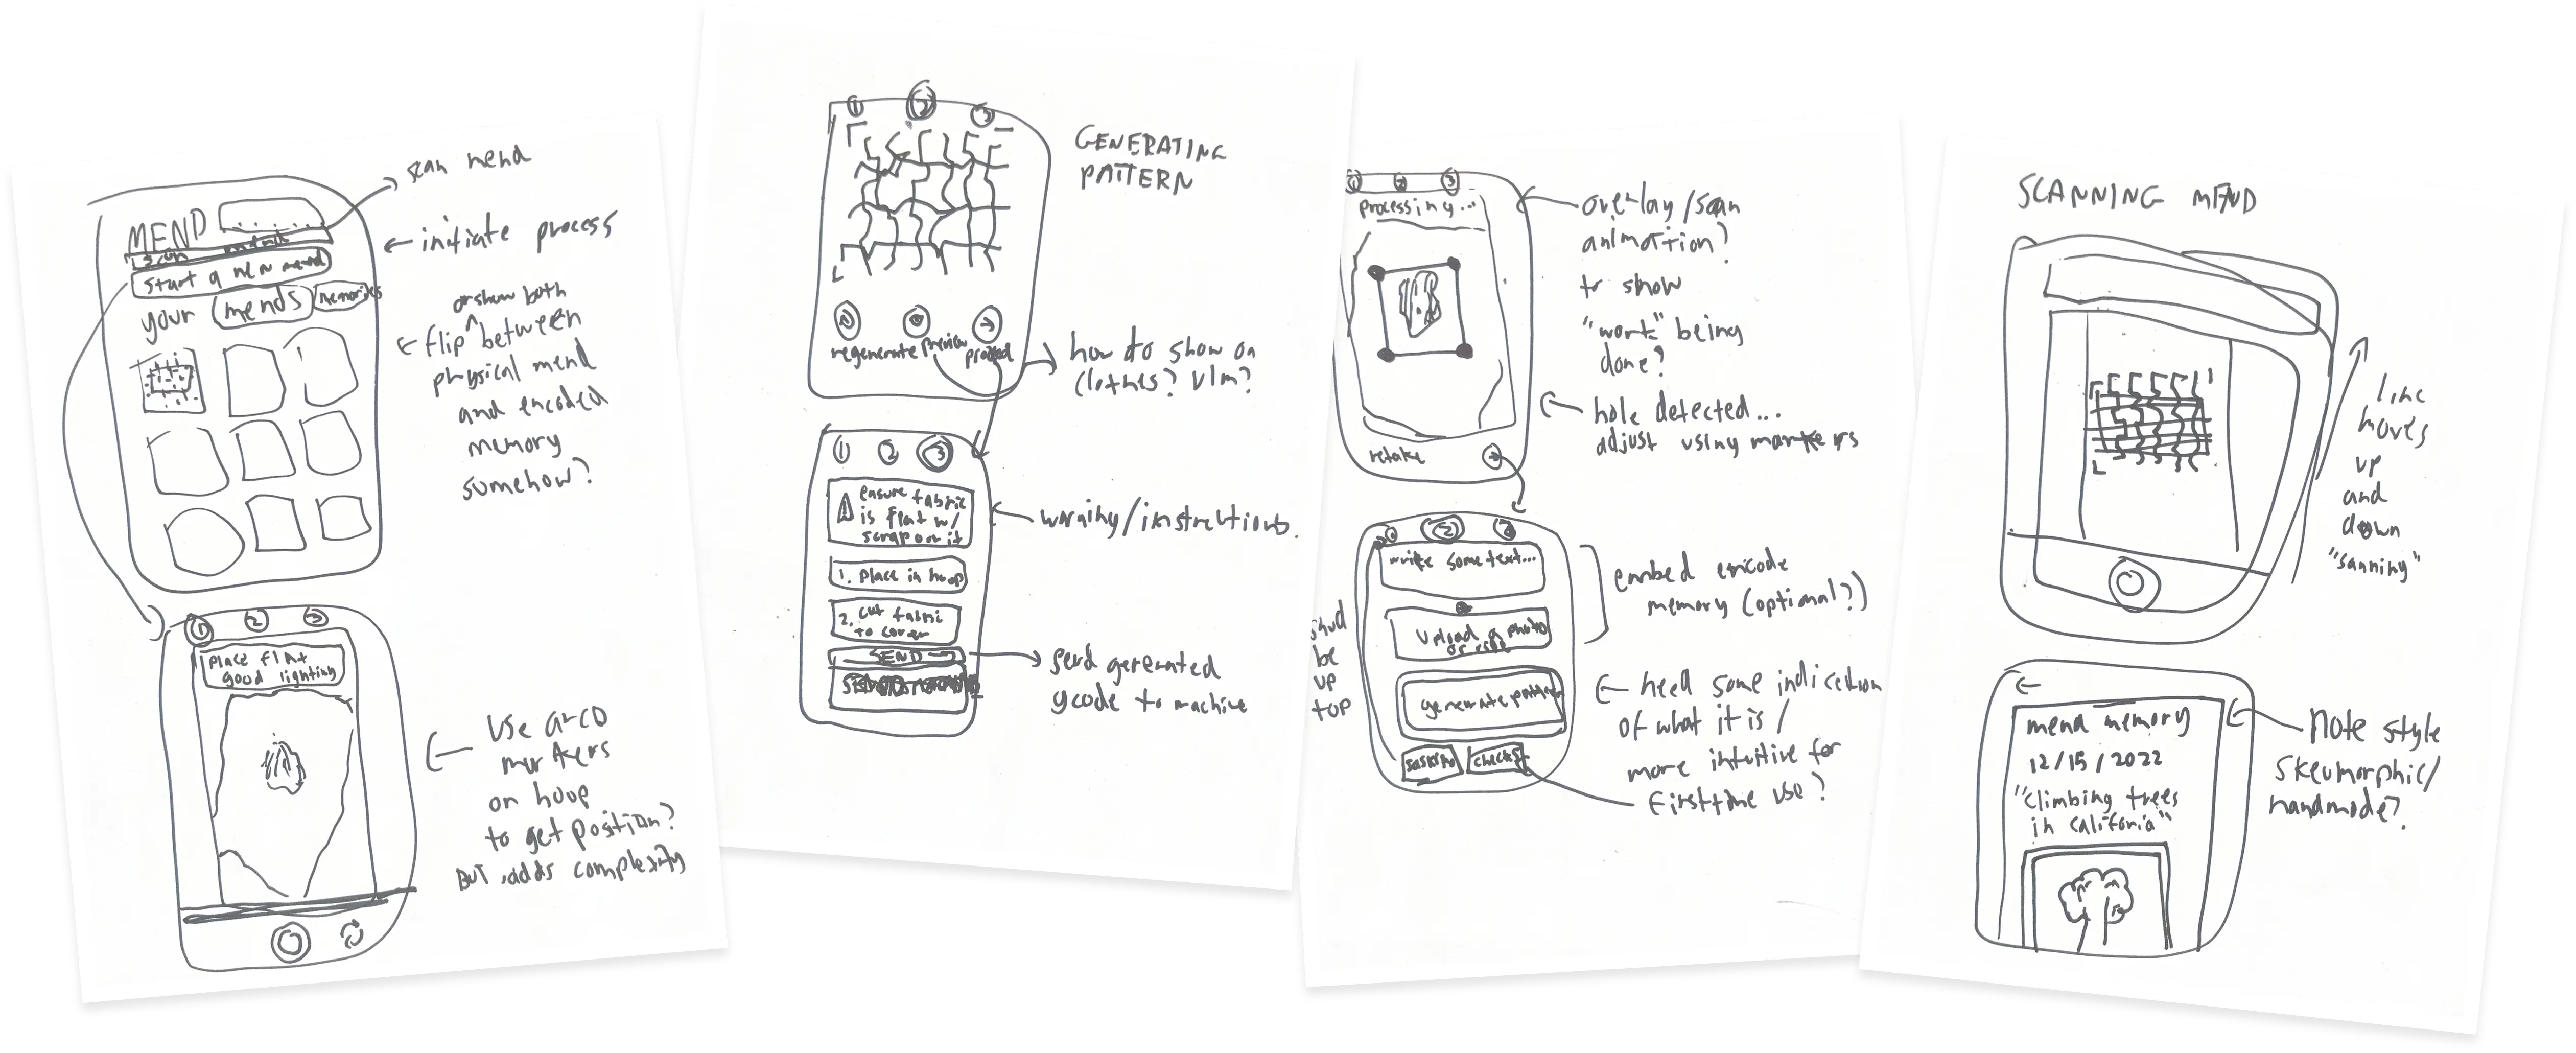 scan mend
MEND
initiate process
Start a new mend
your mends memories
or show both
flip between
physical mend
and encoded
memory
somehow?
1 2 3
place flat
good lighting
Use arco
markers
on hoop
to get position?
BUT adds complexity
1 2 3
GENERATING
PATTERN
regenerate preview proceed
how to show on
clothes? vlm?
1 2 3
ensure fabric
is flat w/
scrap on it
warning/instructions.
1. place in hoop
2. cut fabric
to cover
SEND
send generated
gcode to machine
1 2 3
processing...
overlay/scan
animation?
to show
"work" being
done?
hole detected...
adjust using markers
retake
2
write some text...
embed encode
memory (optional?)
Upload a photo
generate pattern
need some indication
of what it is/
more intuitive for
first time use?
be
up
top
sashiko
SCANNING MEND
line
moves
up
and
down
"sanning"
mend memory
12/15/2022
"Climbing trees
in califonia"
note style
skeumorphic/
handmade?